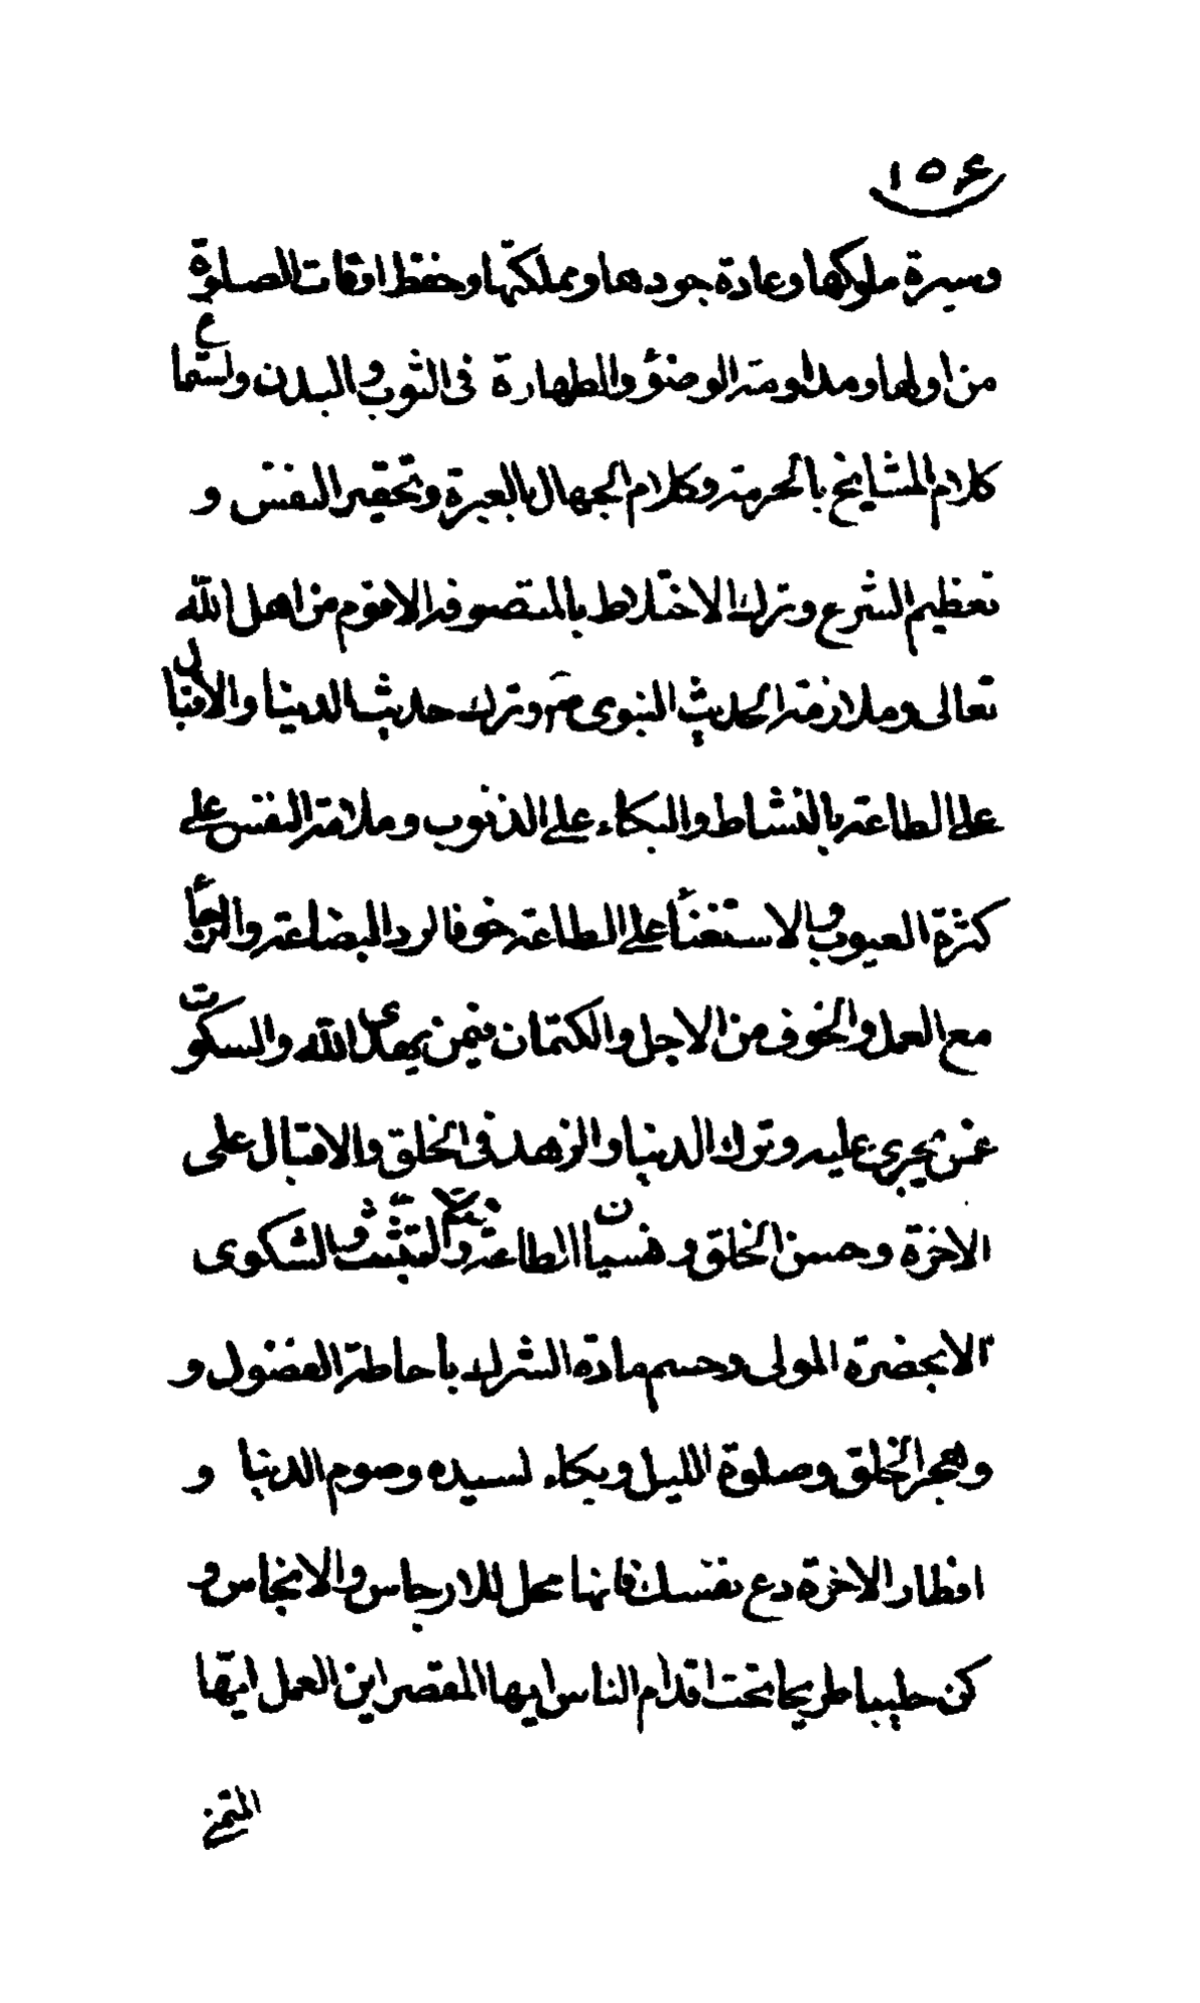 ١٥٤
وسيرة ملوكها وعادة جودها ومملكتها وحفظ اوقات الصلوة
من اولها ومداومة الوضؤ والطهارة فى الثوب والبدن واستماع
كلام المشايخ بالحرمة وكلام الجهال بالعبرة وتحقير النفس و
تعظيم الشرع وترك الاختلاط بالمتصوفة الاقوم من اهل الله
تعالى وملازمة الحديث النبوى وترك حديث الدينا والاقبال
على الطاعة بالنشاط والبكاء على الذنوب وملامة النفس على
كثرة العيوب والاستغنأ على الطاعة خوفا لرد البضاعة والرجأ
مع العمل والخوف من الاجل والكتمان فيمن يهدى الله والسكوت
عمن يجرى عليه وترك الدنيا والزهد فى الخلق والاقبال على
الاخرة وحسن الخلق ونسيان الطاعة والشكوى
الا بحضرة المولى وحسم مادة الشرك باحاطة الفضول و
وهجر الخلق وصلوة الليل وبكاء لسيده وصوم الدنيا و
افطار الاخرة دع نفسك فانها محل للارجاس والانجاس و
كن طيبا طريحا تحت اقدام الناس ايها المقصر اين العمل ايها
المتمنى